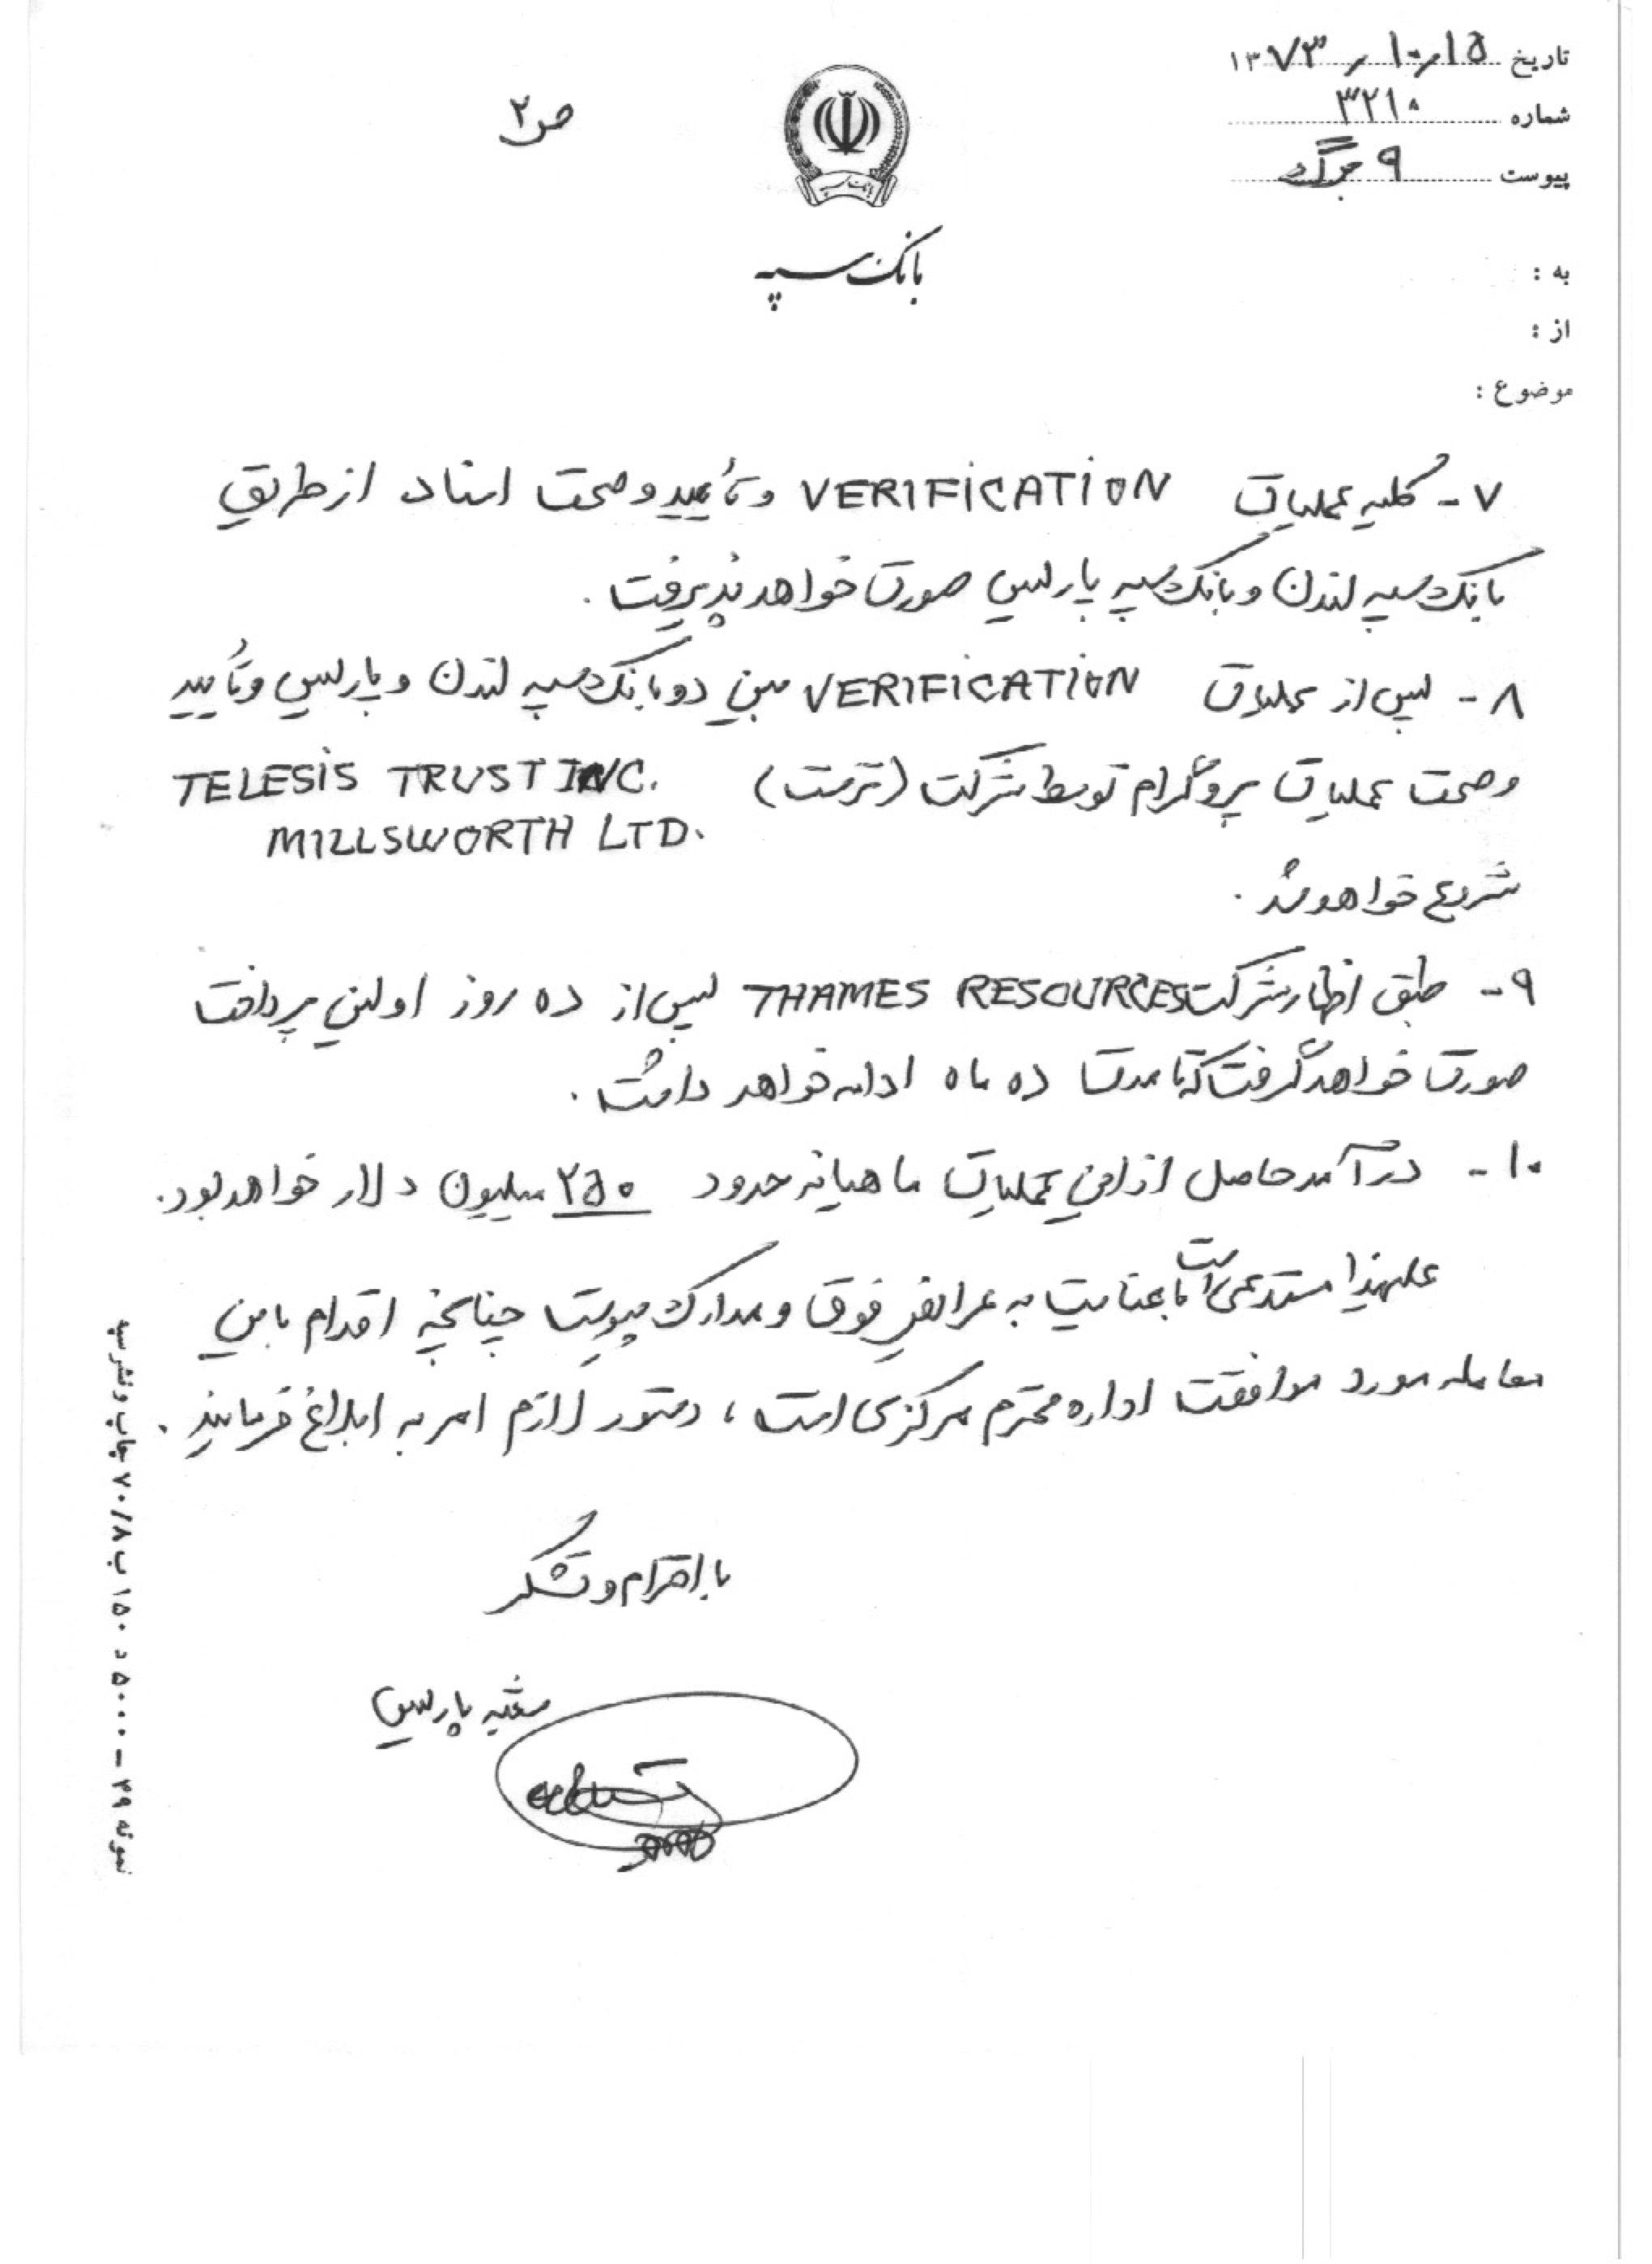 تاریخ ۱۳۷۳/۱۰/۱۵
شماره ۳۲۱۰
پیوست ۹ برگ
ص ۲
بانک سپه
بانک سپه
به :
از :
موضوع :
۷- کلیه عملیات VERIFICATION و تأیید و صحت اسناد از طریق
بانک سپه لندن و بانک سپه پاریس صورت خواهد پذیرفت .
۸- پس از عملیات VERIFICATION بین دو بانک سپه لندن و پاریس و تأیید
و صحت عملیات پروگرام توسط شرکت (ترست) TELESIS TRUST INC.
MILLSWORTH LTD.
شروع خواهد شد .
۹- طبق اظهار شرکت THAMES RESOURCES پس از ده روز اولین پرداخت
صورت خواهد گرفت که تا مدت ده ماه ادامه خواهد داشت .
۱۰- درآمد حاصل از این عملیات ماهیانه حدود ۲۵۰ میلیون دلار خواهد بود .
علیهذا مستدعی است با عنایت به عرایض فوق و مدارک پیوست چنانچه اقدام باین
معامله مورد موافقت اداره محترم مرکزی است ، دستور لازم امر به ابلاغ فرمایند .
با احترام و تشکر
شعبه پاریس
نمونه ۳۹ – ۵۰۰۰ د ۱۵۰ ب ۷۰/۸ چاپ و نشر سپه